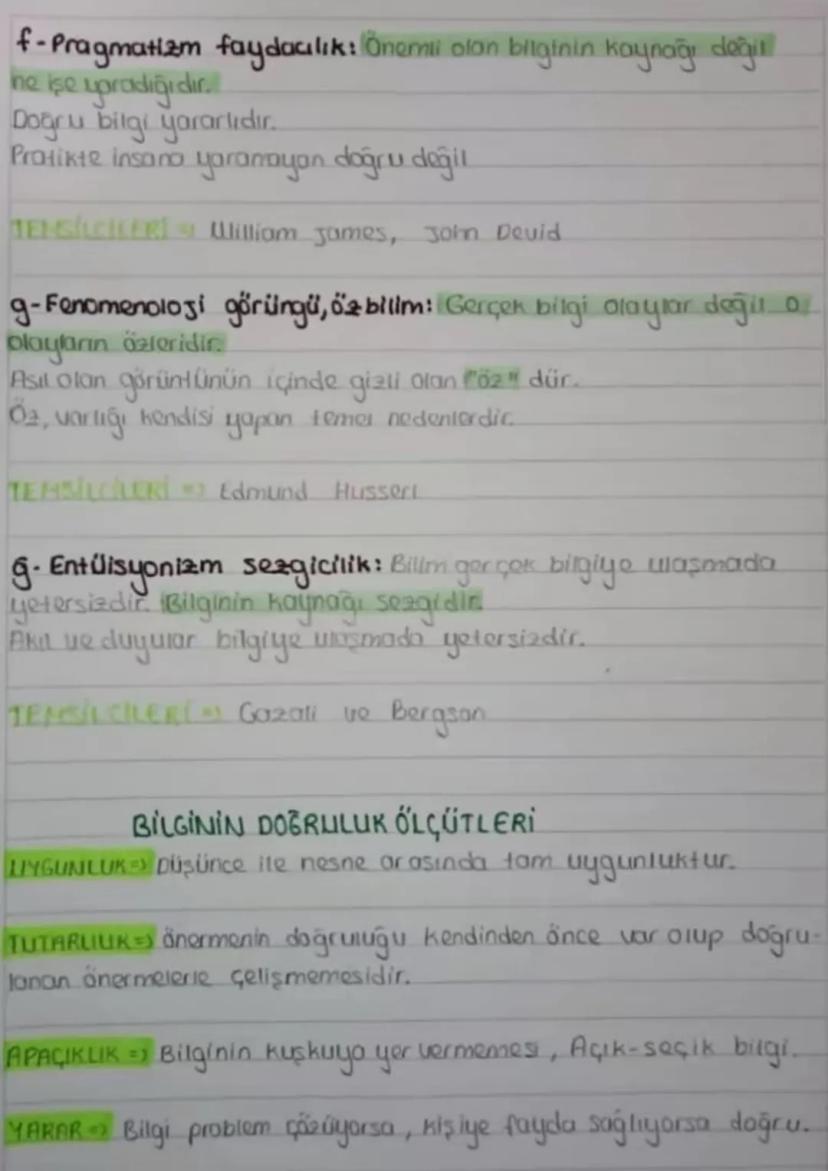 f-Pragmatizm faydacılık: Önemli olan bilginin kaynağı değil
ne işe yaradığıdır.
Doğru bilgi yararlıdır.
Pratikte insana yaramayan doğru değil
TEMSİLCİLERİ => William James, John Devid
g-Fenomenoloji görüngü, öz bilim: Gerçek bilgi olaylar değil o
olayların özleridir.
Asıl olan görüntünün içinde gizli olan "öz" dür.
Öz, varlığı kendisi yapan temel nedenlerdir.
TEMSİLCİLERİ => Edmund Husserl
ğ- Entüisyonizm sezgicilik: Bilim gerçek bilgiye ulaşmada
yetersizdir. Bilginin kaynağı sezgidir.
Akıl ve duyular bilgiye ulaşmada yetersizdir.
TEMSİLCİLERİ => Gazali ve Bergson
BİLGİNİN DOĞRULUK ÖLÇÜTLERİ
UYGUNLUK => Düşünce ile nesne arasında tam uygunluktur.
TUTARLILIK => önermenin doğruluğu kendinden önce var olup doğru-
lanan önermelerle çelişmemesidir.
APAÇIKLIK => Bilginin kuşkuya yer vermemesi, Açık-seçik bilgi.
YARAR => Bilgi problem çözüyorsa, kişiye fayda sağlıyorsa doğru.